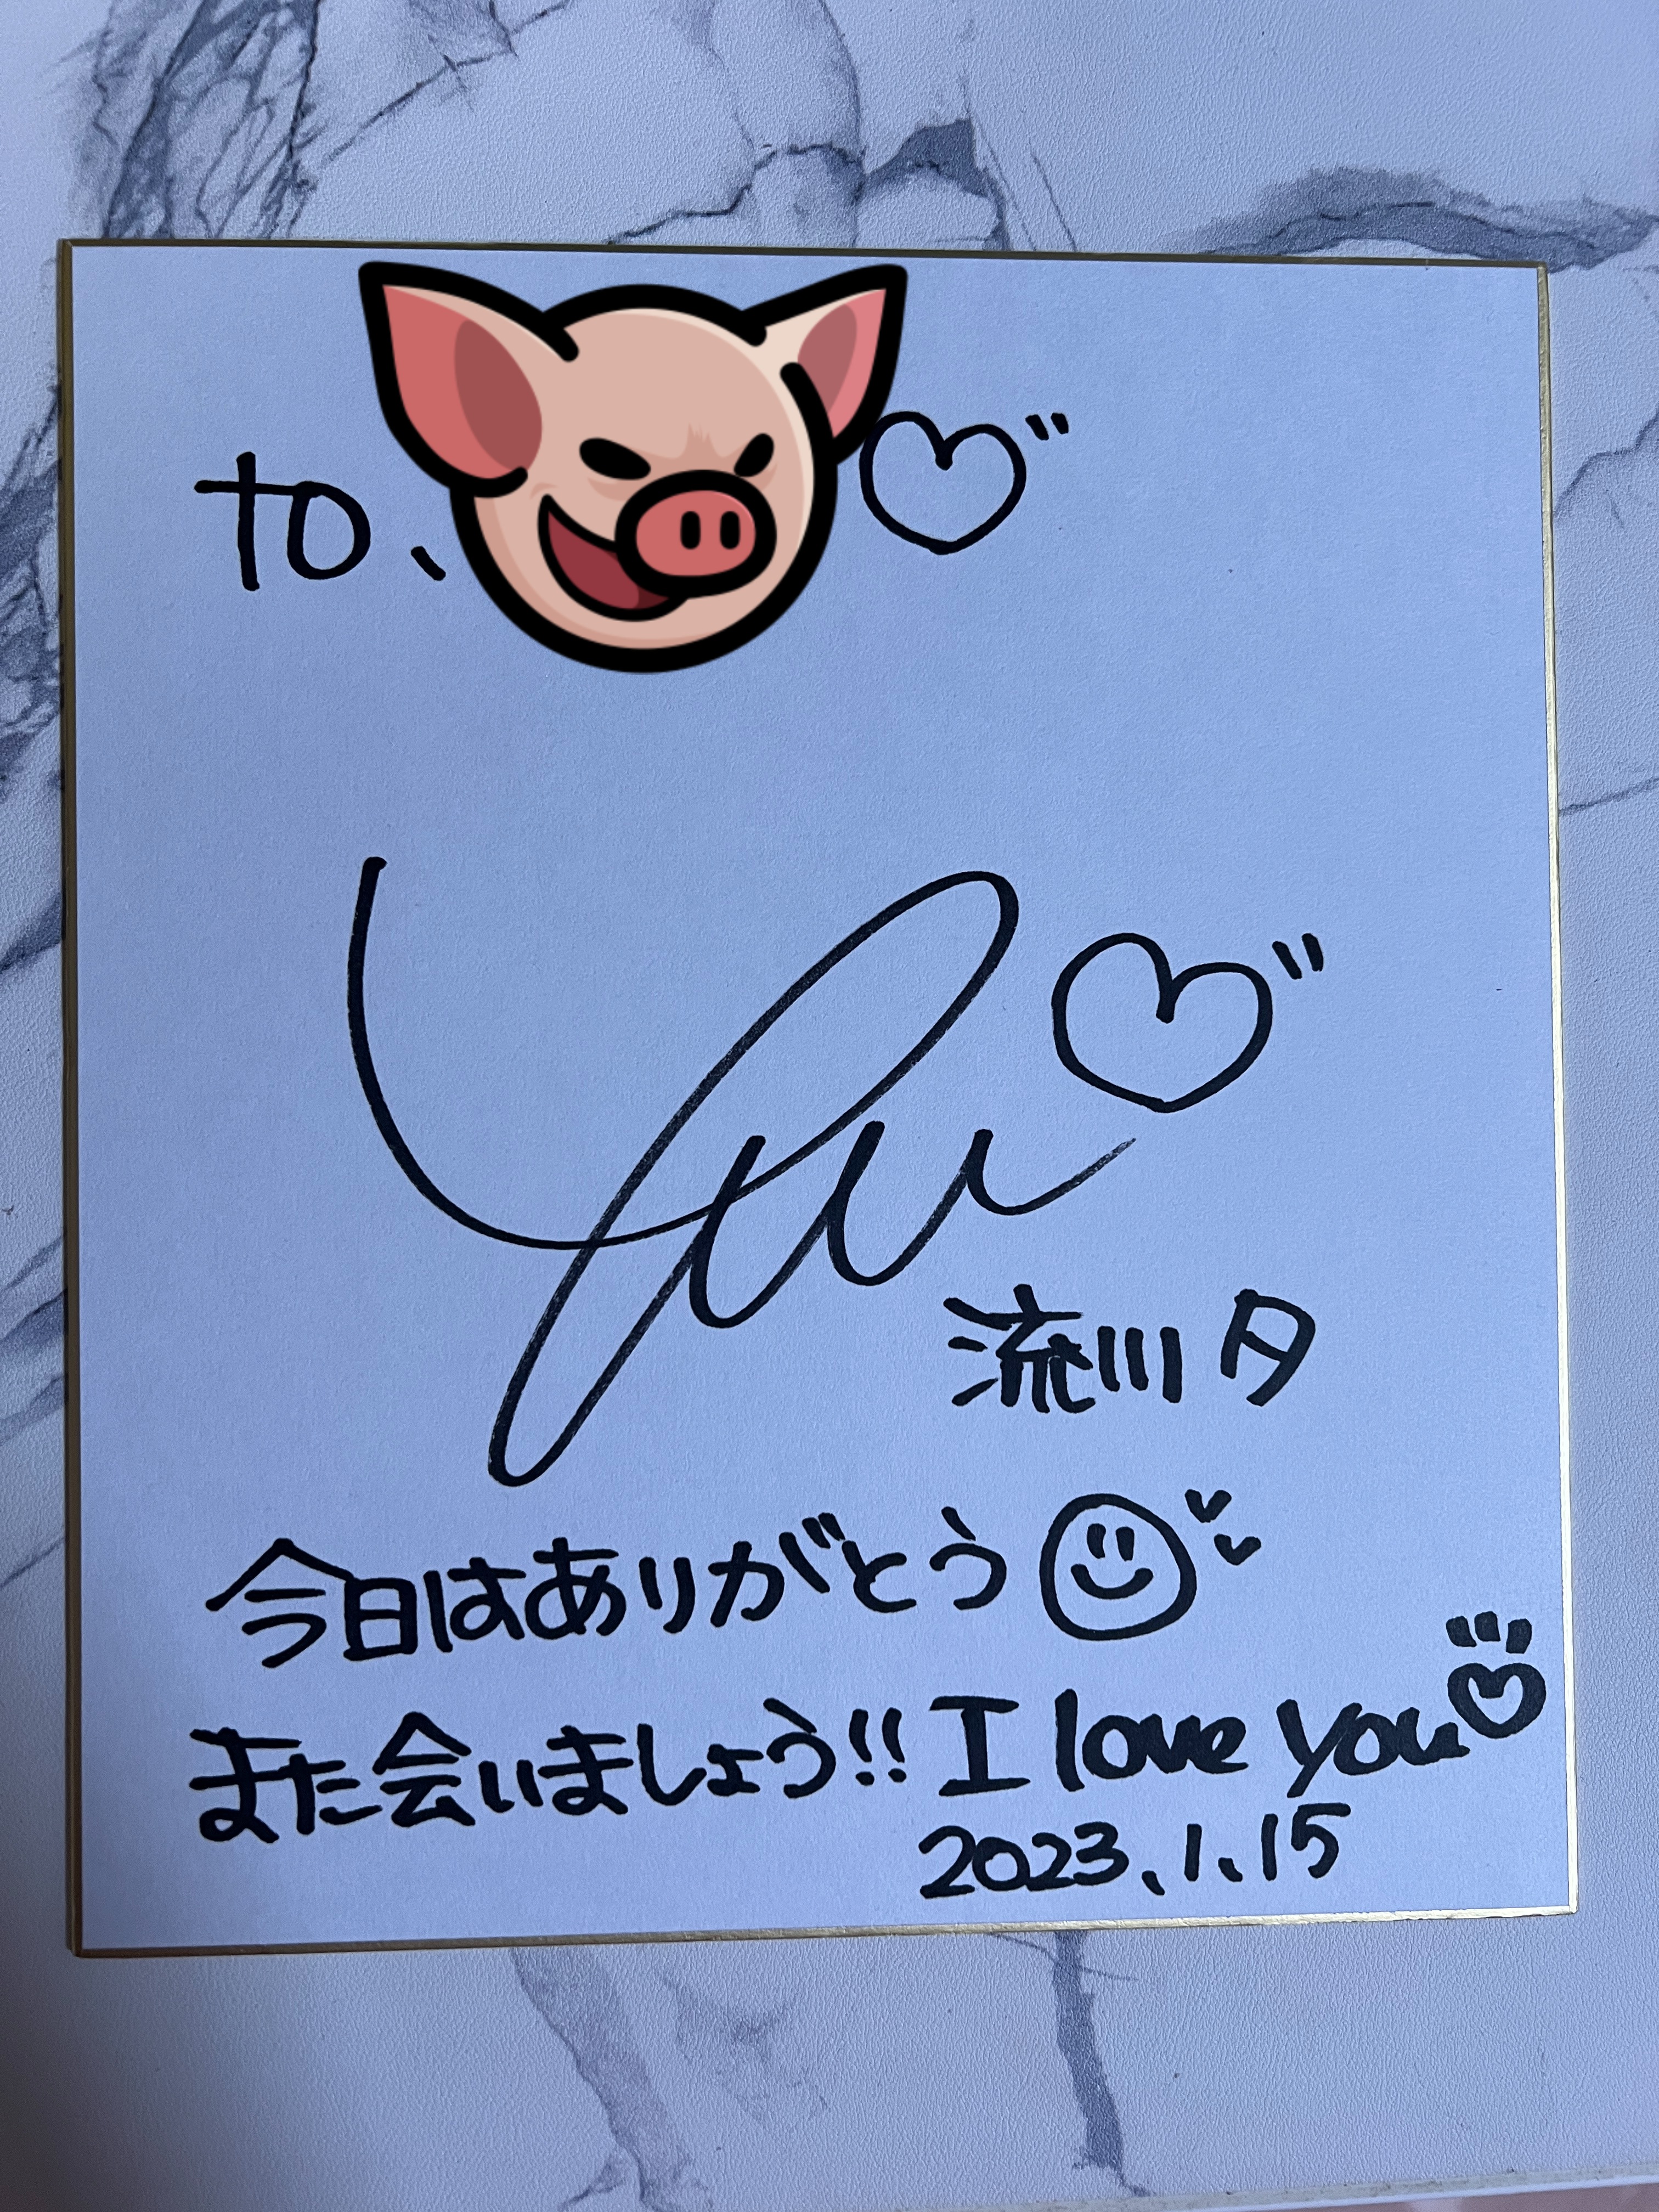 to、
Yuu
流川 夕
今日はありがとう
また会いましょう!! I love you
2023.1.15